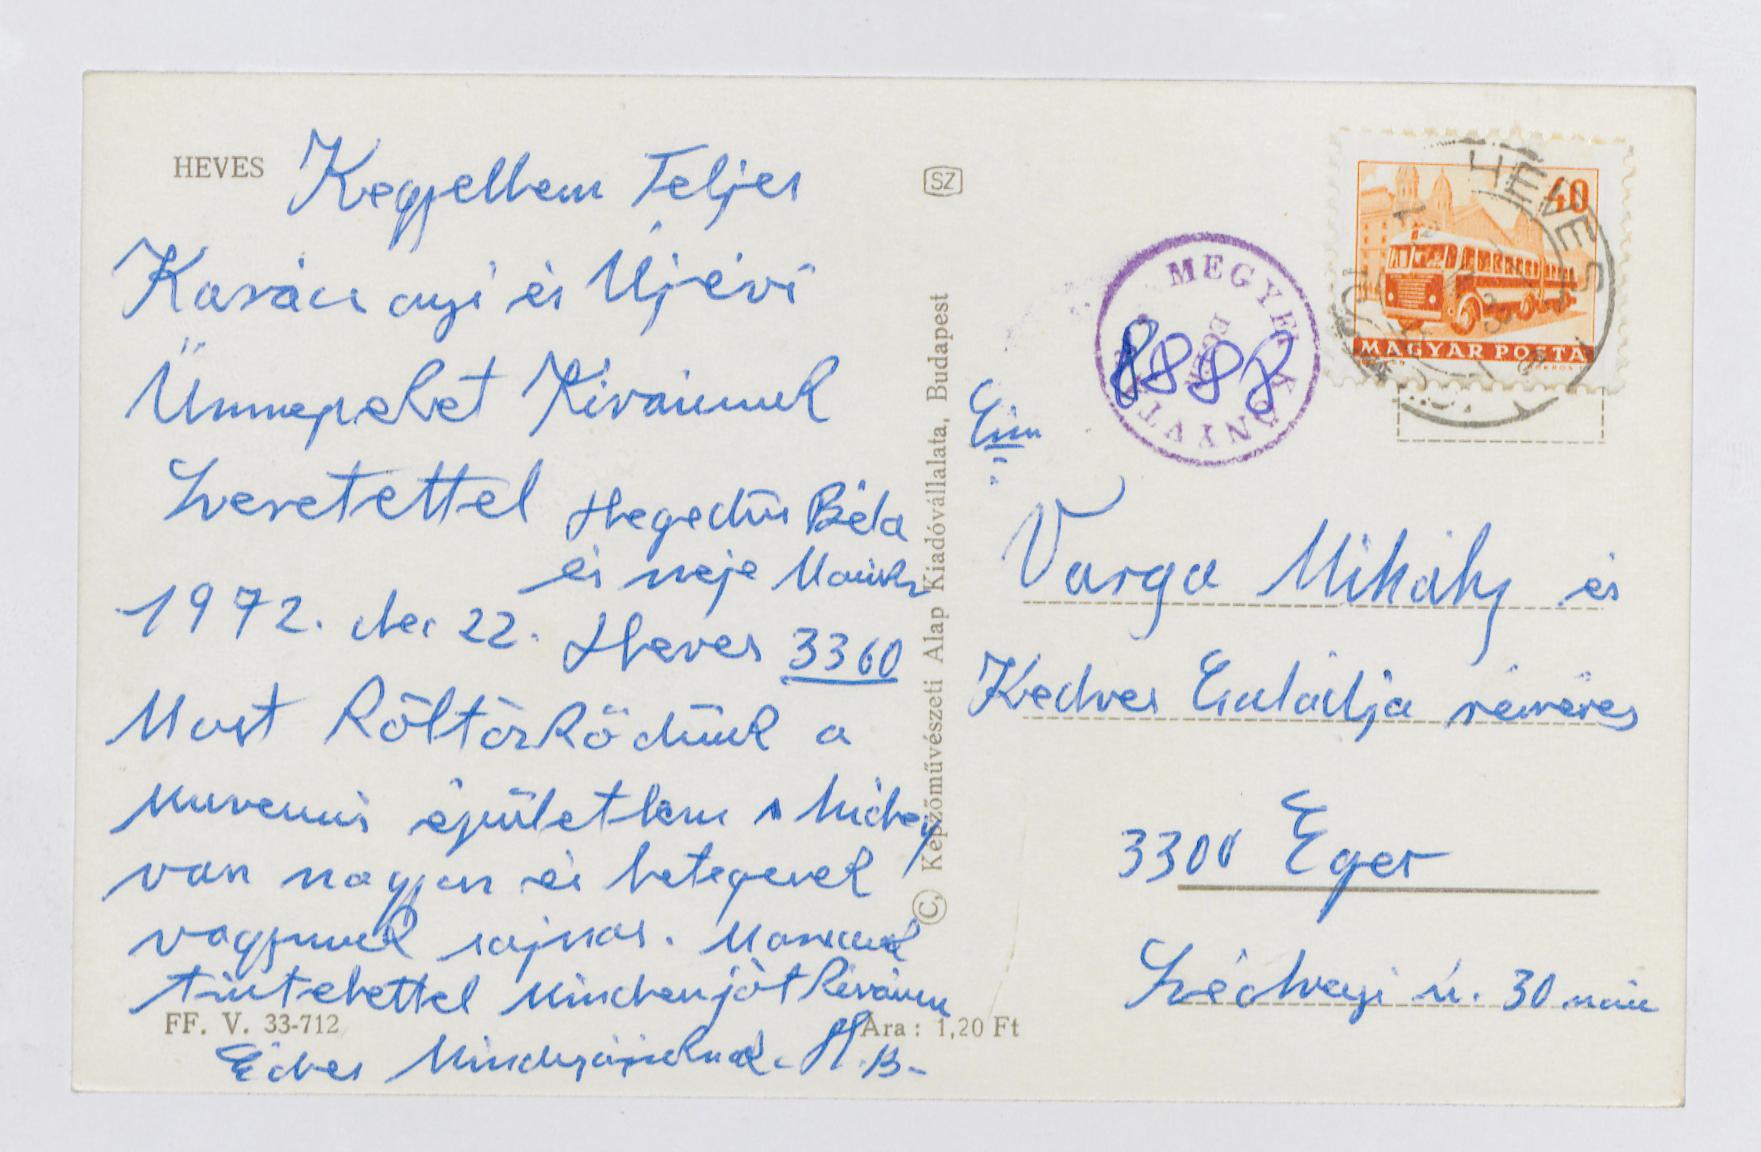 HEVES
Kegyellem Teljes
Karácsonyi és Újévi
Ünnepeket Kívánunk
Szeretettel Hegedűs Béla
és neje Mariska
1972. dec 22. Heves 3360
Most Költözködünk a
muzeumi épületben s hideg
van nagyon és betegesek
vagyunk sajnos.
tisztelettel Mindenjót Kívánunk
Édes Mindnyájuknak. H.B.
FF. V. 33-712
Ára: 1,20 Ft
SZ
© Képzőművészeti Alap Kiadóvállalata, Budapest
MEGYEI KÖNYVTÁR
EGER
8888
40
MAGYAR POSTA
HEVES
Cím
Varga Mihály és
Kedves Családja részére
3300 Eger
Széchenyi u. 30 szám